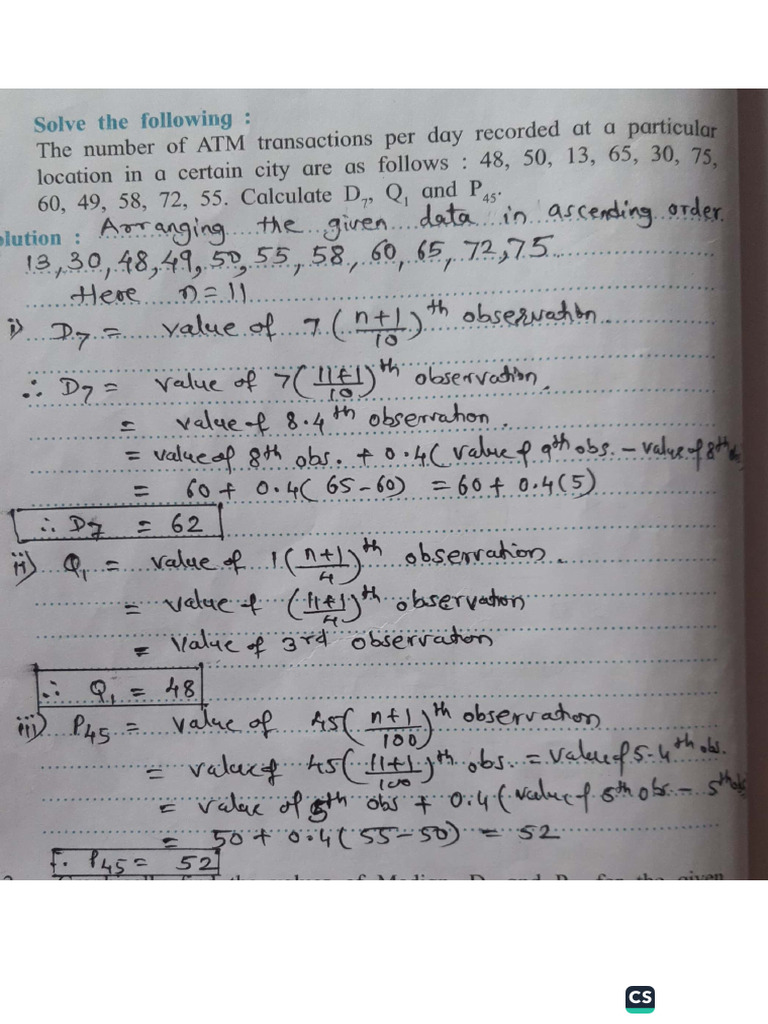 Solve the following :
The number of ATM transactions per day recorded at a particular
location in a certain city are as follows : 48, 50, 13, 65, 30, 75,
60, 49, 58, 72, 55. Calculate D₇, Q₁ and P₄₅.
olution : Arranging the given data in ascending order.
13, 30, 48, 49, 50, 55, 58, 60, 65, 72, 75.
Here n = 11
i) D₇ = value of 7 (n+1/10)th observation.
∴ D₇ = value of 7 (11+1/10)th observation.
= value of 8.4th observation.
= value of 8th obs. + 0.4 ( value of 9th obs. - value of 8th
= 60 + 0.4 ( 65 - 60) = 60 + 0.4 (5)
∴ D₇ = 62
ii) Q₁ = value of 1 (n+1/4)th observation.
= value of (11+1/4)th observation
= value of 3rd observation
∴ Q₁ = 48
iii) P₄₅ = value of 45 (n+1/100)th observation
= value of 45 (11+1/100)th obs. = value of 5.4th obs.
= value of 5th obs + 0.4 ( value of 6th obs - 5th obs
= 50 + 0.4 ( 55 - 50) = 52
P₄₅ = 52
the values of Median, D and P for the given
CS